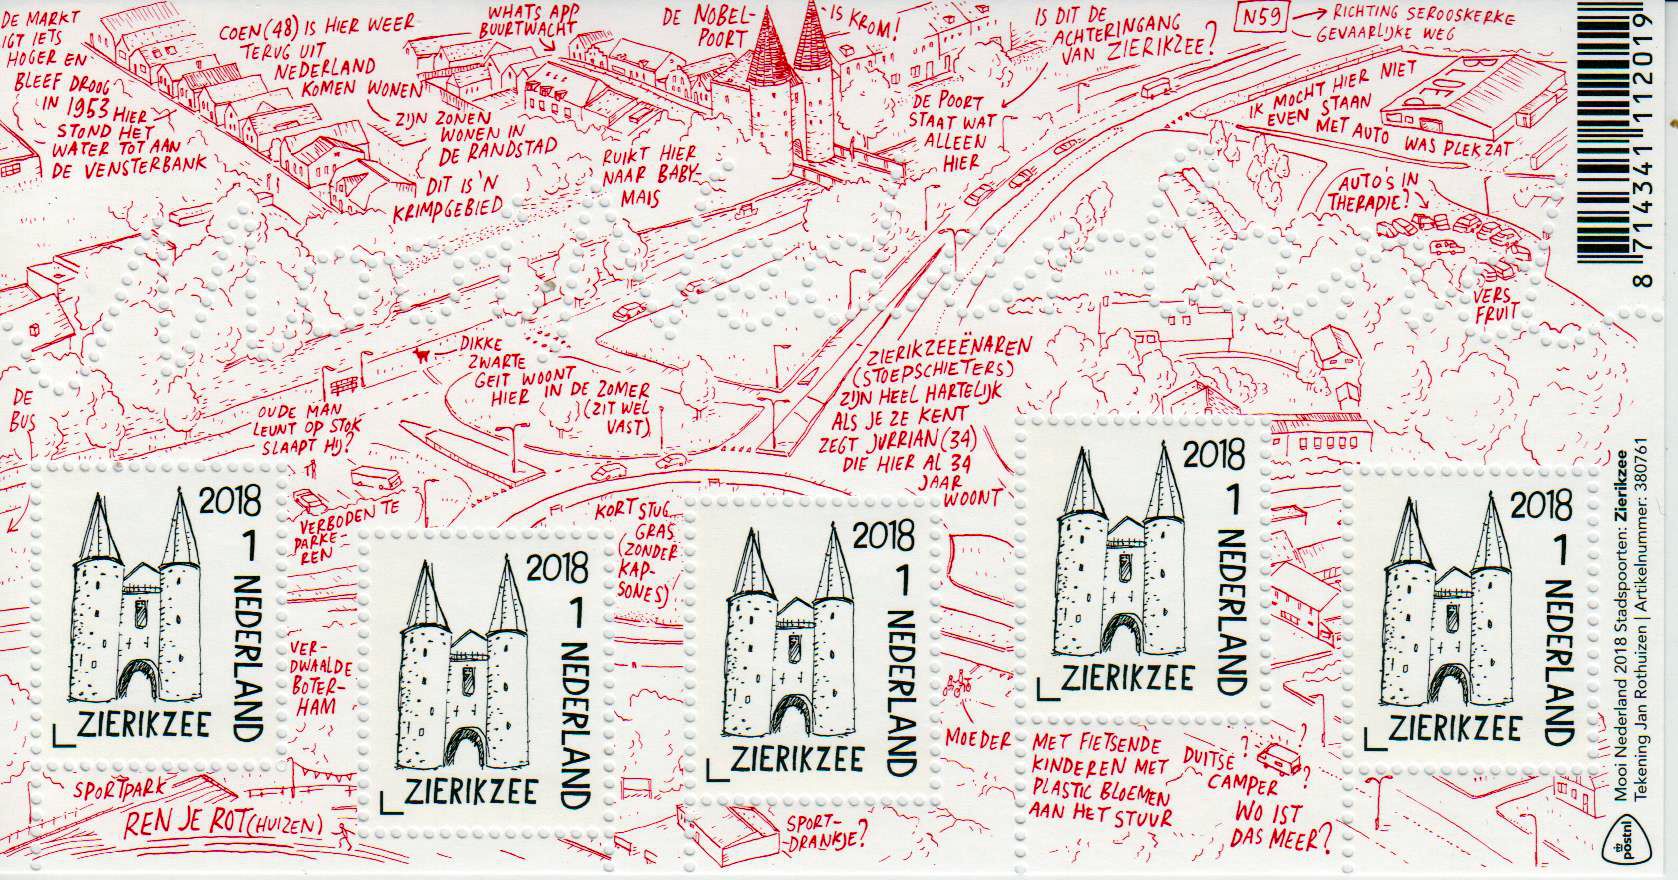 DE MARKT
IGT IETS
HOGER EN
BLEEF DROOG
IN 1953 HIER
STOND HET
WATER TOT AAN
DE VENSTERBANK
COEN (48) IS HIER WEER
TERUG UIT
NEDERLAND
KOMEN WONEN
ZIJN ZONEN
WONEN IN
DE RANDSTAD
DIT IS 'N
KRIMPGEBIED
WHATS APP
BUURTWACHT
DE NOBEL-
POORT
IS KROM!
RUIKT HIER
NAAR BABY-
MAIS
IS DIT DE
ACHTERINGANG
VAN ZIERIKZEE?
DE POORT
STAAT WAT
ALLEEN
HIER
N59
RICHTING SEROOSKERKE
GEVAARLIJKE WEG
PETER
IK MOCHT HIER NIET
EVEN STAAN
MET AUTO WAS PLEKZAT
AUTO'S IN
THERAPIE?
VERS
FRUIT
8 714341 112019
DE
BUS
DIKKE
ZWARTE
GEIT WOONT
HIER IN DE ZOMER
(ZIT WEL
VAST)
OUDE MAN
LEUNT OP STOK
SLAAPT HIJ?
ZIERIKZEEËNAREN
(STOEPSCHIETERS)
ZIJN HEEL HARTELIJK
ALS JE ZE KENT
ZEGT JURRIAN (34)
DIE HIER AL 34
JAAR
WOONT
VERBODEN TE
PARKE-
REN
KORT STUG
GRAS
(ZONDER
KAP-
SONES)
VER-
DWAALDE
BOTER-
HAM
2018
1 NEDERLAND
ZIERIKZEE
2018
1 NEDERLAND
ZIERIKZEE
2018
1 NEDERLAND
ZIERIKZEE
2018
1 NEDERLAND
ZIERIKZEE
2018
1 NEDERLAND
ZIERIKZEE
SPORTPARK
REN JE ROT (HUIZEN)
SPORT-
DRANKJE?
MOEDER
MET FIETSENDE
KINDEREN MET
PLASTIC BLOEMEN
AAN HET STUUR
DUITSE
CAMPER
? ? ?
WO IST
DAS MEER?
Mooi Nederland 2018 Stadspoorten: Zierikzee
Tekening Jan Rothuizen | Artikelnummer: 380761
postnl